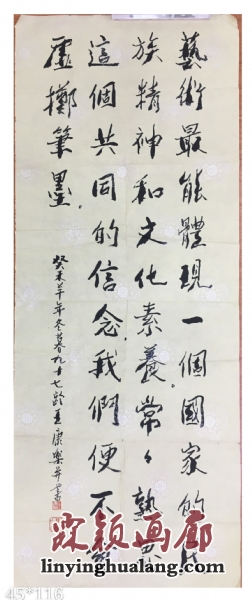 藝術最能體現一個國家的民
族精神和文化素養,常々熟思
這個共同的信念,我們便不會
虛擲筆墨。
癸未羊年冬暮九十七齡王康樂并書
霖颖画廊
www.linyinghualang.com
45*116